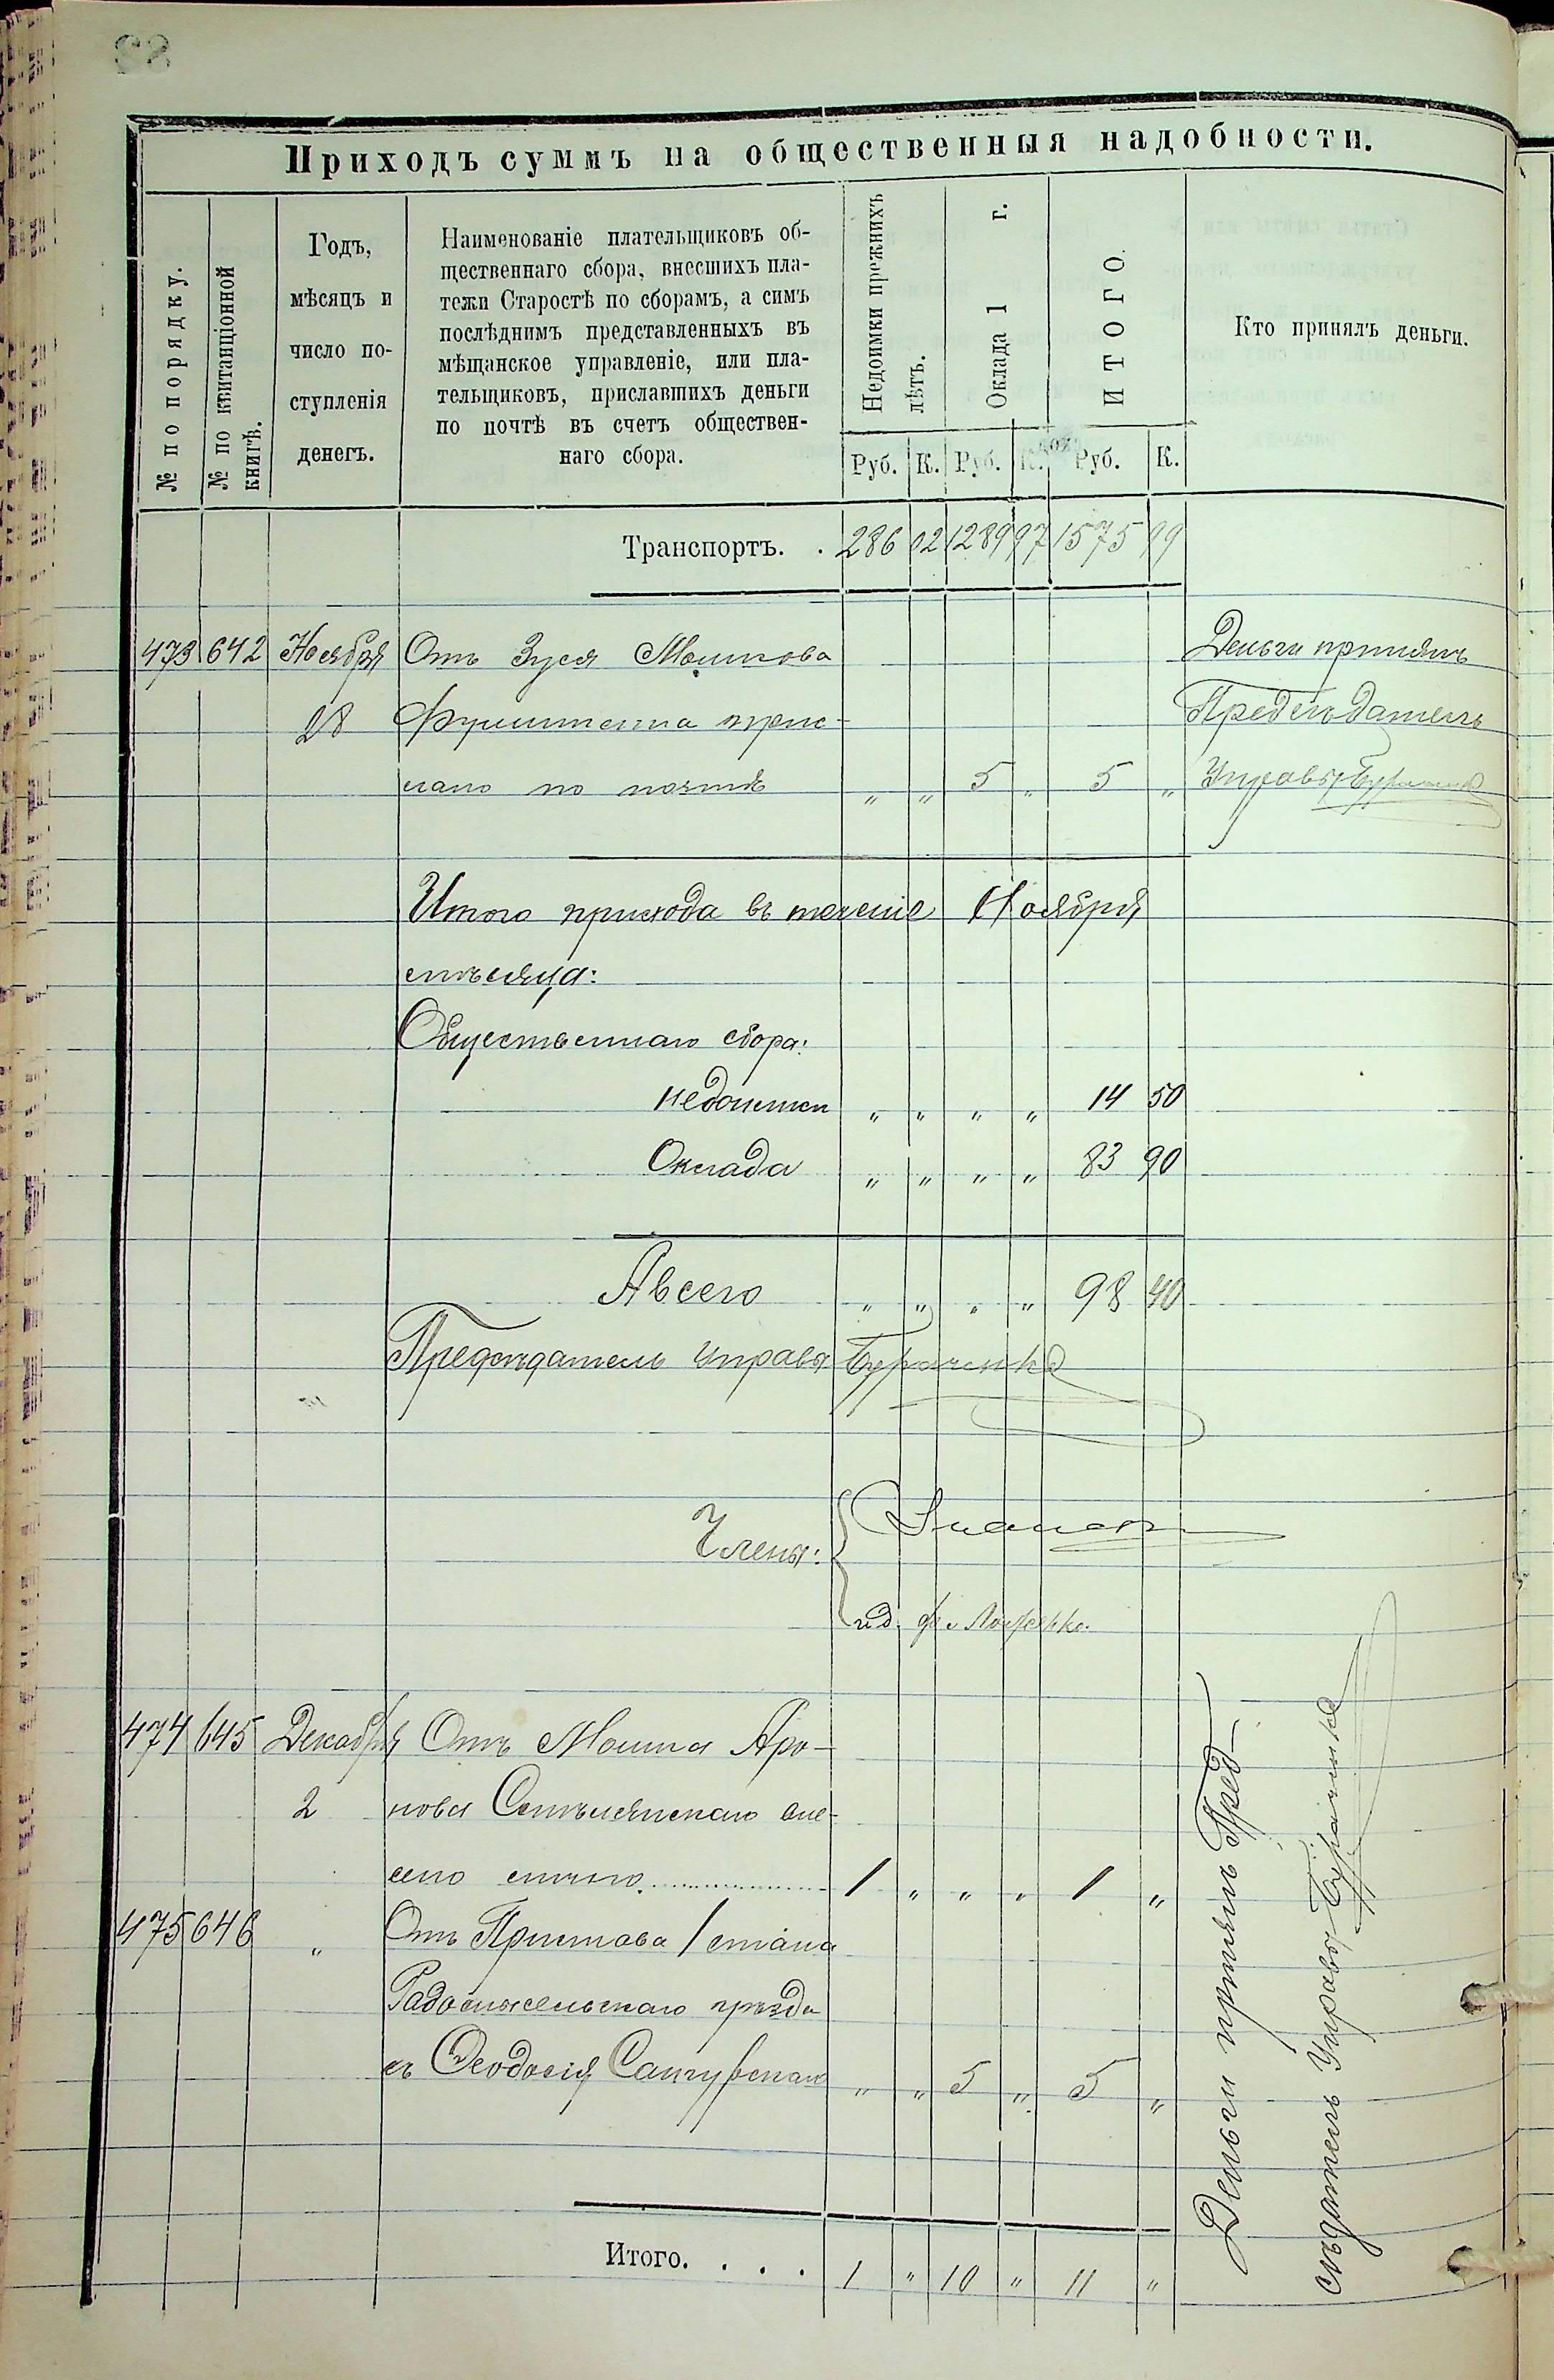 Приходъ суммъ на общественныя надобности.
№ по порядку.
№ по квитанціонной книгѣ.
Годъ,
мѣсяцъ и
число по-
ступленія
денегъ.
Наименованіе плательщиковъ об-
щественнаго сбора, внесшихъ пла-
тежи Старостѣ по сборамъ, а симъ
послѣднимъ представленныхъ въ
мѣщанское управленіе, или пла-
тельщиковъ, приславшихъ деньги
по почтѣ въ счетъ обществен-
наго сбора.
Недоимки прежнихъ
лѣтъ.
Оклада 1 г.
ИТОГО.
Кто принялъ деньги.
Руб. К. Руб. К. Руб. К.
Транспортъ. . 286 02 1289 97 1575 99
473 642 Ноября Отъ Зуся Мошкова Деньги принялъ
28 прис- Предсѣдатель
лано по почтѣ „ „ 5 „ 5 „ Управы
Итого прихода въ теченіе Ноября
мѣсяца:
Общественнаго сбора:
недоимки „ „ „ „ 14 50
Оклада „ „ „ „ 83 90
А всего „ „ „ „ 98 40
Предсѣдатель Управы
Члены:
и д.
474 645 Декабря Отъ Мошка Аро-
2 нова внe-
сено лично 1 „ „ „ 1 „
475 646 „ Отъ Пристава 1 стана
Радомысльскаго уѣзда
съ Ѳеодосія „ „ 5 „ 5 „
Деньги принялъ Пред-
сѣдатель Управы
Итого. . . . 1 „ 10 „ 11 „